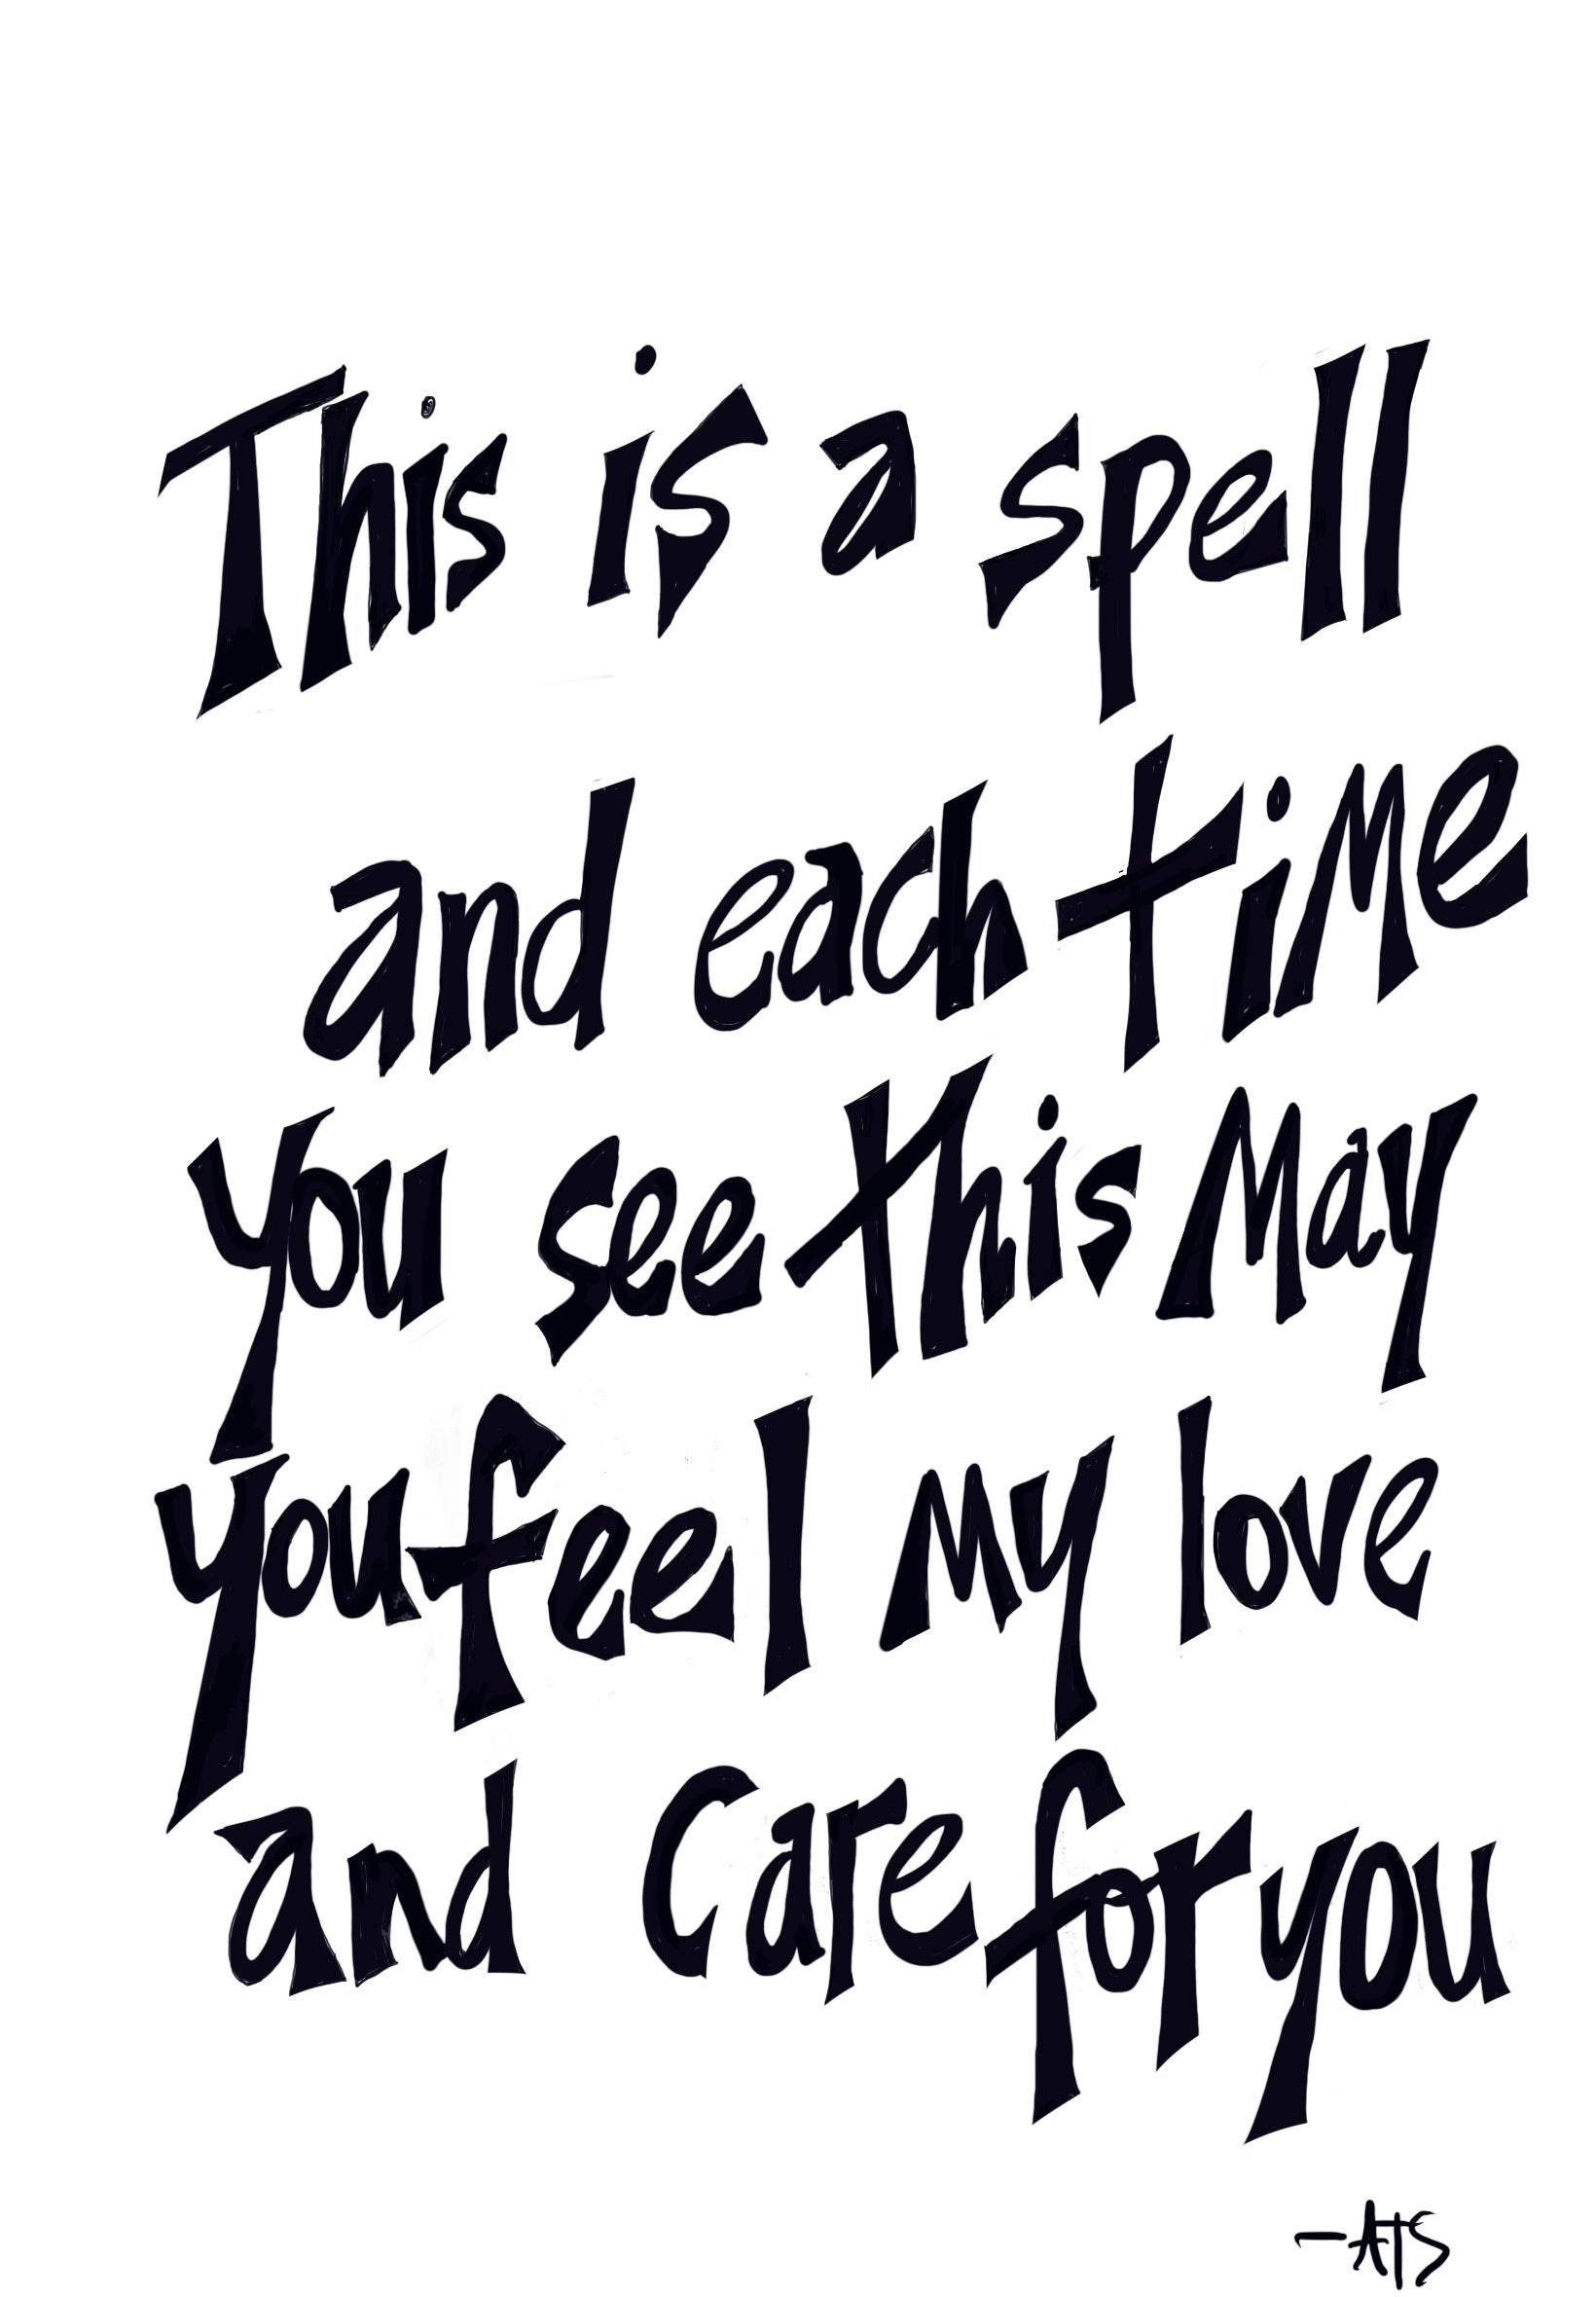 This is a spell
and each time
you see this May
you feel My love
and care for you
—ATS